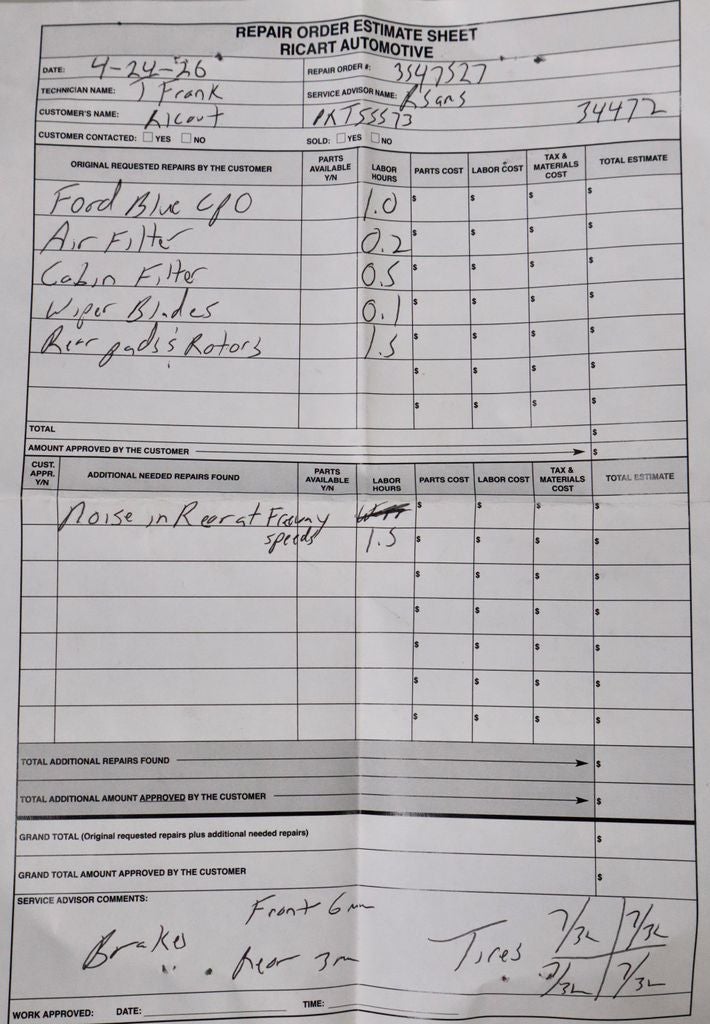 REPAIR ORDER ESTIMATE SHEET
RICART AUTOMOTIVE
DATE: 4-24-26 REPAIR ORDER #: 3547527
TECHNICIAN NAME: J Frank SERVICE ADVISOR NAME:
CUSTOMER'S NAME: Ricart PKT55573 34472
CUSTOMER CONTACTED: ☐ YES ☐ NO SOLD: ☐ YES ☐ NO
ORIGINAL REQUESTED REPAIRS BY THE CUSTOMER PARTS AVAILABLE Y/N LABOR HOURS PARTS COST LABOR COST TAX & MATERIALS COST TOTAL ESTIMATE
Ford Blue CPO 1.0 $ $ $ $
Air Filter 0.2 $ $ $ $
Cabin Filter 0.5 $ $ $ $
Wiper Blades 0.1 $ $ $ $
Rear pads & Rotors 1.5 $ $ $ $
$ $ $ $
$ $ $ $
TOTAL $
AMOUNT APPROVED BY THE CUSTOMER $
CUST. APPR. Y/N ADDITIONAL NEEDED REPAIRS FOUND PARTS AVAILABLE Y/N LABOR HOURS PARTS COST LABOR COST TAX & MATERIALS COST TOTAL ESTIMATE
Noise in Rear at Freeway $ $ $ $
speeds 1.5 $ $ $ $
$ $ $ $
$ $ $ $
$ $ $ $
$ $ $ $
$ $ $ $
TOTAL ADDITIONAL REPAIRS FOUND $
TOTAL ADDITIONAL AMOUNT APPROVED BY THE CUSTOMER $
GRAND TOTAL (Original requested repairs plus additional needed repairs) $
GRAND TOTAL AMOUNT APPROVED BY THE CUSTOMER $
SERVICE ADVISOR COMMENTS:
Front 6mm
Brakes Tires 7/32 7/32
Rear 3m 7/32 7/32
WORK APPROVED: DATE: TIME: